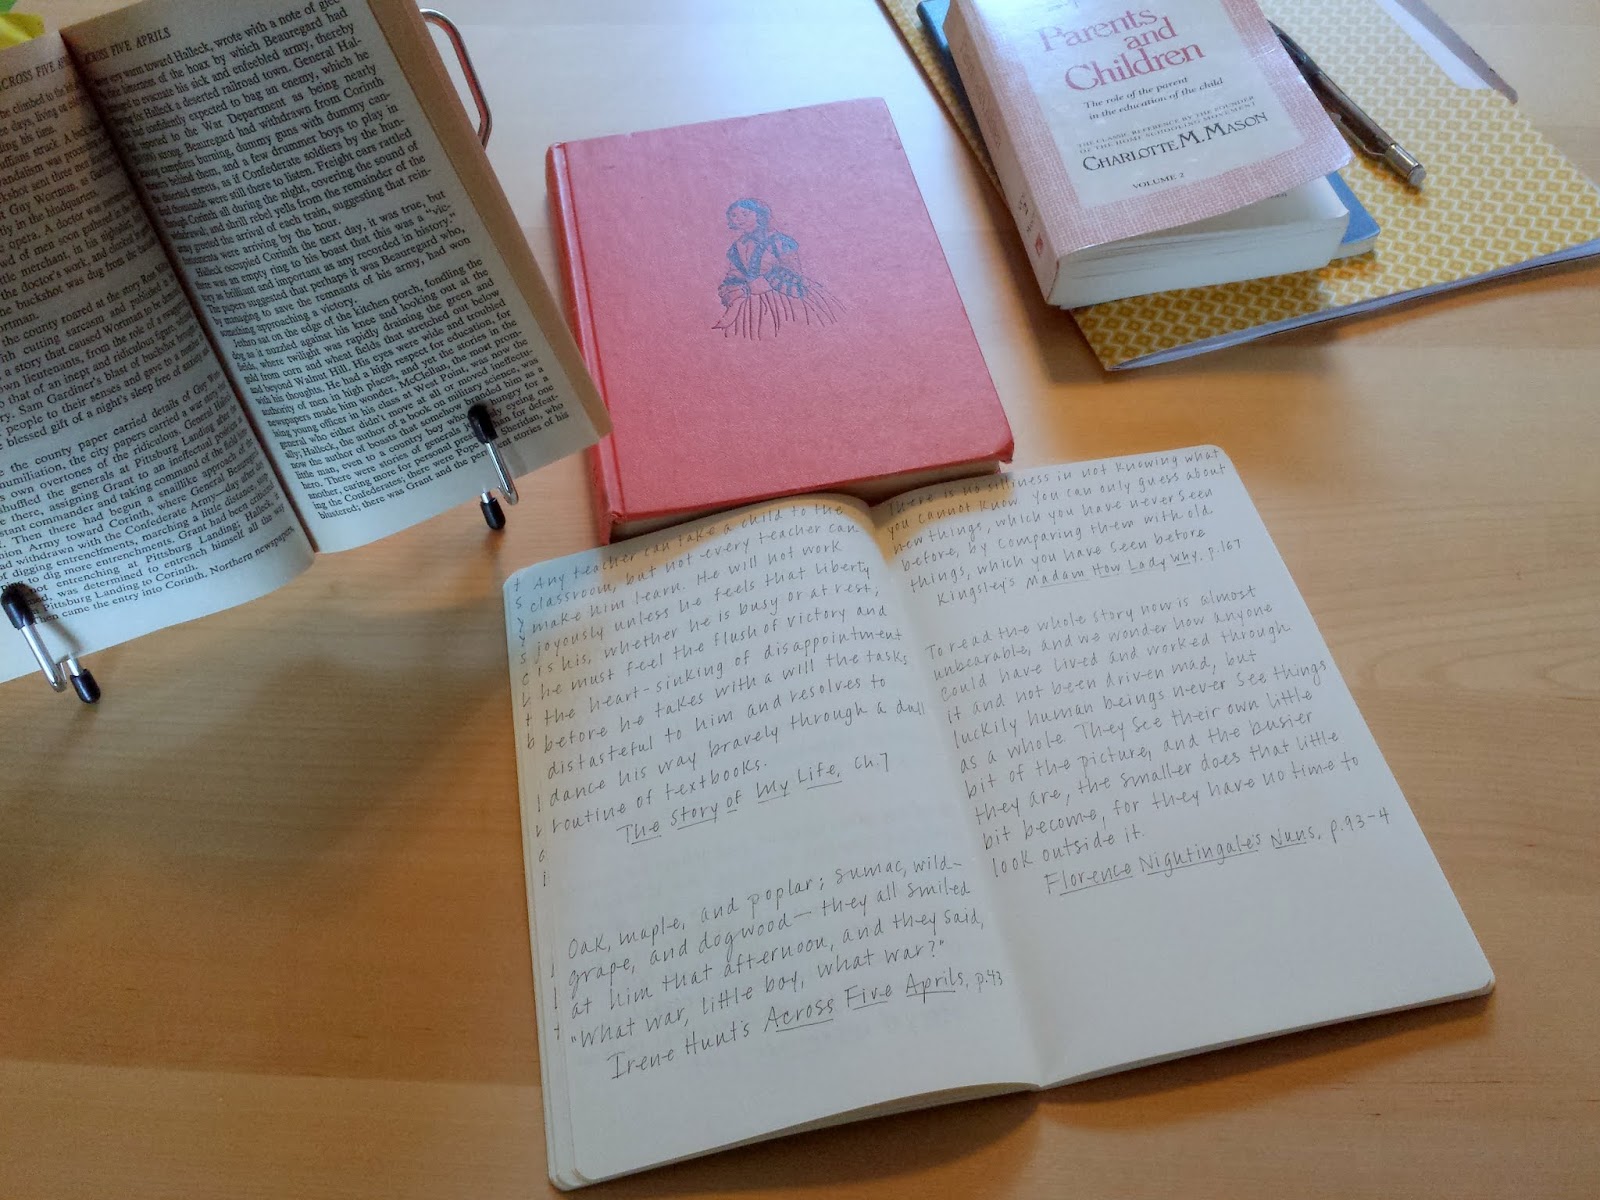 CROSS FIVE AP
climbed to the
days, living on
ing his time.
uffians struck. A
vandalism was
ckshot sent three
Guy Wortman, as
in the headquarters
opera. A doctor was
of men soon gathered in
merchant, in his nightshirt,
the doctor's work, and
buckshot was dug from the
ortman.
the county roared at the story Ross
ith cutting sarcasm and published
a story that caused Wortman to be
own lieutenants, from the role of a
to that of an inept and ridiculous figure
ry. Sam Gardiner's blast of buckshot brought
people to their senses and gave to a number
blessed gift of a night's sleep free of
the county paper carried details of Guy
humiliation, the city papers carried a war story
own overtones of the ridiculous. General
shuffled the generals at Pittsburg Landing after
there, assigning Grant to an ineffectual position
stant commander and taking command of the field
Then there had begun a snaillike approach of the
nion Army toward Corinth, where General Beauregard
had withdrawn with the Confederate Army—day after
of digging entrenchments, marching a little distance,
to dig more entrenchments. Grant had been
not entrenching at Pittsburg Landing; Halleck,
was determined to entrench himself all the way
Pittsburg Landing to Corinth.
Then came the entry into Corinth. Northern newspapers
ACROSS FIVE APRILS
very warm toward Halleck, wrote with a note of
bitterness of the hoax by which Beauregard had
to evacuate his sick and enfeebled army, thereby
for Halleck a deserted railroad town. General Hal-
confidently expected to bag an enemy, which he
reported to the War Department as being nearly
strong. Beauregard had withdrawn from Corinth
campfires burning, dummy guns with dummy can-
behind them, and a few drummer boys to play in
deserted streets, as if Confederate soldiers by the hun-
thousands were still there to listen. Freight cars rattled
through Corinth all during the night, covering the sound of
withdrawal; and shrill rebel yells from the remainder of the
army greeted the arrival of each train, suggesting that rein-
were arriving by the hour.
Halleck occupied Corinth the next day, it was true, but
there was an empty ring to his boast that this was a "vic-
tory as brilliant and important as any recorded in history."
The papers suggested that perhaps it was Beauregard who,
by managing to save the remnants of his army, had won
something approaching a victory.
Jethro sat on the edge of the kitchen porch, fondling the
dog as it nuzzled against his knee and looking out at the
fields, where twilight was rapidly draining the green and
gold from corn and wheat fields that stretched out below
and beyond Walnut Hill. His eyes were wide and troubled
with his thoughts. He had a high respect for education, for
authority of men in high places, and yet the stories in the
newspapers made him wonder. McClellan, the most prom-
ising young officer in his class at West Point, was now the
general who either didn't move at all or moved ineffectu-
ally; Halleck, the author of a book on military science, was
now the author of boasts that somehow branded him as a
little man, even to a country boy
hero. There were stories of generals
mother, caring more for personal
ing the Confederates; there were Pope
blustered; there was Grant and the
Parents
and
Children
The role of the parent
in the education of the child
THE CLASSIC REFERENCE BY THE FOUNDER
OF THE HOME SCHOOLING MOVEMENT
CHARLOTTE M. MASON
VOLUME 2
Any teacher can take a child to the
classroom, but not every teacher can
make him learn. He will not work
joyously unless he feels that liberty
is his, whether he is busy or at rest;
he must feel the flush of victory and
the heart-sinking of disappointment
before he takes with a will the tasks
distasteful to him and resolves to
dance his way bravely through a dull
routine of textbooks.
The Story of My Life, Ch. 7
Oak, maple, and poplar; sumac, wild-
grape, and dogwood— they all smiled
at him that afternoon, and they said,
"What war, little boy, what war?"
Irene Hunt's Across Five Aprils, p.43
There is no silliness in not knowing what
you cannot know. You can only guess about
new things, which you have never seen
before, by comparing them with old
things, which you have seen before
Kingsley's Madam How Lady Why, p.167
To read the whole story now is almost
unbearable, and we wonder how anyone
could have lived and worked through
it and not been driven mad, but
luckily human beings never see things
as a whole. They see their own little
bit of the picture, and the busier
they are, the smaller does that little
bit become, for they have no time to
look outside it.
Florence Nightingale's Nuns, p.93-4